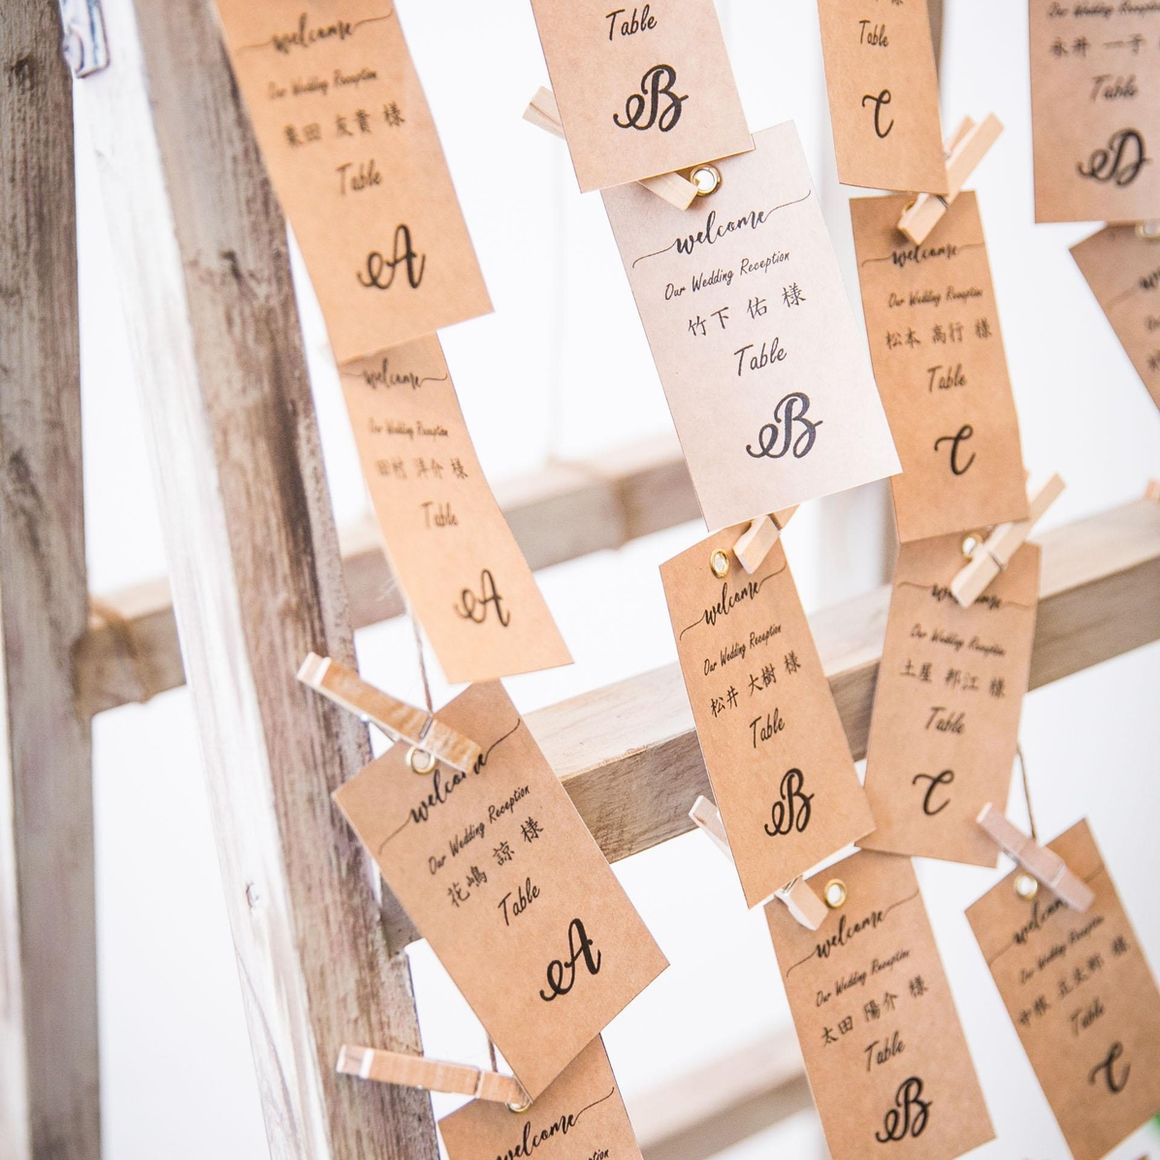 welcome
Our Wedding Reception
栗田 友貴 様
Table
A
welcome
Our Wedding Reception
田村 洋介 様
Table
A
welcome
Our Wedding Reception
花嶋 諒 様
Table
A
welcome
Our Wedding Reception
Table
B
welcome
Our Wedding Reception
竹下 佑 様
Table
B
welcome
Our Wedding Reception
松井 大樹 様
Table
B
welcome
Our Wedding Reception
太田 陽介 様
Table
B
Table
C
welcome
Our Wedding Reception
松本 高行 様
Table
C
welcome
Our Wedding Reception
土屋 邦江 様
Table
C
welcome
Our Wedding Reception
様
Table
C
Our Wedding Reception
永井 一子
Table
D